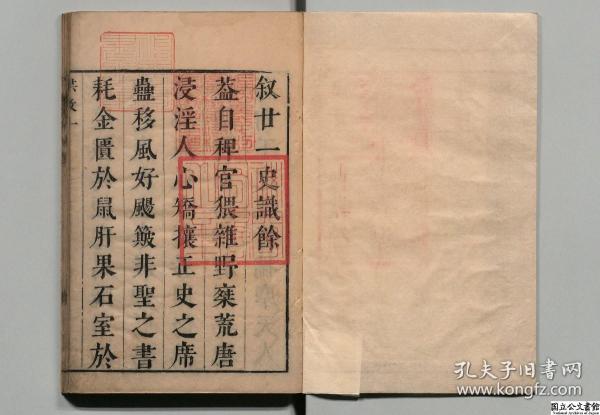 叙廿一史識餘
葢自稗官猥雜野乘荒唐
浸淫人心矯攘正史之席
蠱移風好颺簸非聖之書
耗金匱於鼠肝果石室於
孔夫子旧書网
www.kongfz.com
国立公文書館
National Archives of Japan